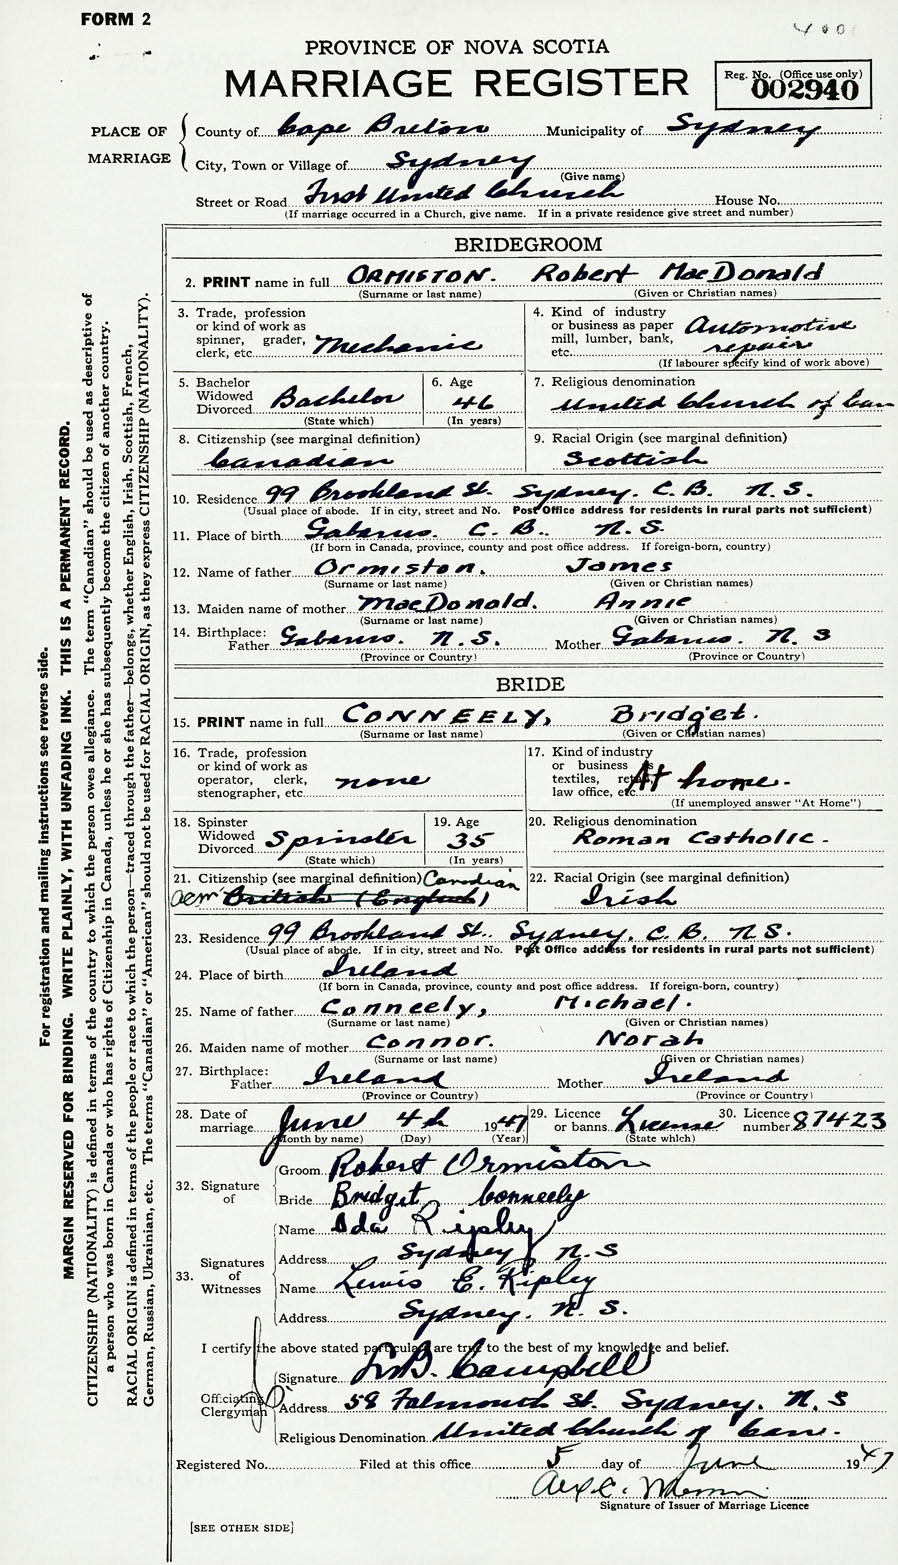 FORM 2
PROVINCE OF NOVA SCOTIA
MARRIAGE REGISTER
Reg. No. (Office use only)
002940
PLACE OF MARRIAGE
County of Cape Breton Municipality of Sydney
City, Town or Village of Sydney
(Give name)
Street or Road First United Church House No.
(If marriage occurred in a Church, give name. If in a private residence give street and number)
BRIDEGROOM
2. PRINT name in full ORMISTON. Robert MacDonald
(Surname or last name) (Given or Christian names)
3. Trade, profession or kind of work as spinner, grader, clerk, etc. Mechanic
4. Kind of industry or business as paper mill, lumber, bank, etc. Automotive repair
(If labourer specify kind of work above)
5. Bachelor Widowed Divorced Bachelor
(State which)
6. Age 46
(In years)
7. Religious denomination
United Church of Can
8. Citizenship (see marginal definition)
Canadian
9. Racial Origin (see marginal definition)
Scottish
10. Residence 99 Brookland St. Sydney. C.B. N.S.
(Usual place of abode. If in city, street and No. Post Office address for residents in rural parts not sufficient)
11. Place of birth Gabarus. C.B. N.S.
(If born in Canada, province, county and post office address. If foreign-born, country)
12. Name of father Ormiston. James
(Surname or last name) (Given or Christian names)
13. Maiden name of mother MacDonald. Annie
(Surname or last name) (Given or Christian names)
14. Birthplace: Father Gabarus. N.S. Mother Gabarus. N.S
(Province or Country) (Province or Country)
BRIDE
15. PRINT name in full CONNEELY, Bridget.
(Surname or last name) (Given or Christian names)
16. Trade, profession or kind of work as operator, clerk, stenographer, etc. none
17. Kind of industry or business as textiles, retail, law office, etc. At home.
(If unemployed answer "At Home")
18. Spinster Widowed Divorced Spinster
(State which)
19. Age 35
(In years)
20. Religious denomination
Roman Catholic.
21. Citizenship (see marginal definition) Canadian
acm British (English)
22. Racial Origin (see marginal definition)
Irish
23. Residence 99 Brookland St. Sydney, C.B. N.S.
(Usual place of abode. If in city, street and No. Post Office address for residents in rural parts not sufficient)
24. Place of birth Ireland
(If born in Canada, province, county and post office address. If foreign-born, country)
25. Name of father Conneely, Michael.
(Surname or last name) (Given or Christian names)
26. Maiden name of mother Connor. Norah
(Surname or last name) (Given or Christian names)
27. Birthplace: Father Ireland Mother Ireland
(Province or Country) (Province or Country)
28. Date of marriage June 4th 1947
(Month by name) (Day) (Year)
29. Licence or banns License
(State which)
30. Licence number 87423
32. Signature of
Groom Robert Ormiston
Bride Bridget Conneely
33. Signatures of Witnesses
Name Ida Ripley
Address Sydney N.S
Name Lewis E. Ripley
Address Sydney. N.S.
I certify the above stated particulars are true to the best of my knowledge and belief.
Officiating Clergyman
Signature Campbell
Address 58 Falmouth St. Sydney. N.S
Religious Denomination United Church of Can.
Registered No. Filed at this office 5 day of June 1947
Signature of Issuer of Marriage Licence
[SEE OTHER SIDE]
For registration and mailing instructions see reverse side.
MARGIN RESERVED FOR BINDING. WRITE PLAINLY, WITH UNFADING INK. THIS IS A PERMANENT RECORD.
CITIZENSHIP (NATIONALITY) is defined in terms of the country to which the person owes allegiance. The term "Canadian" should be used as descriptive of
a person who was born in Canada or who has rights of Citizenship in Canada, unless he or she has subsequently become the citizen of another country.
RACIAL ORIGIN is defined in terms of the people or race to which the person—traced through the father—belongs, whether English, Irish, Scottish, French,
German, Russian, Ukrainian, etc. The terms "Canadian" or "American" should not be used for RACIAL ORIGIN, as they express CITIZENSHIP (NATIONALITY).